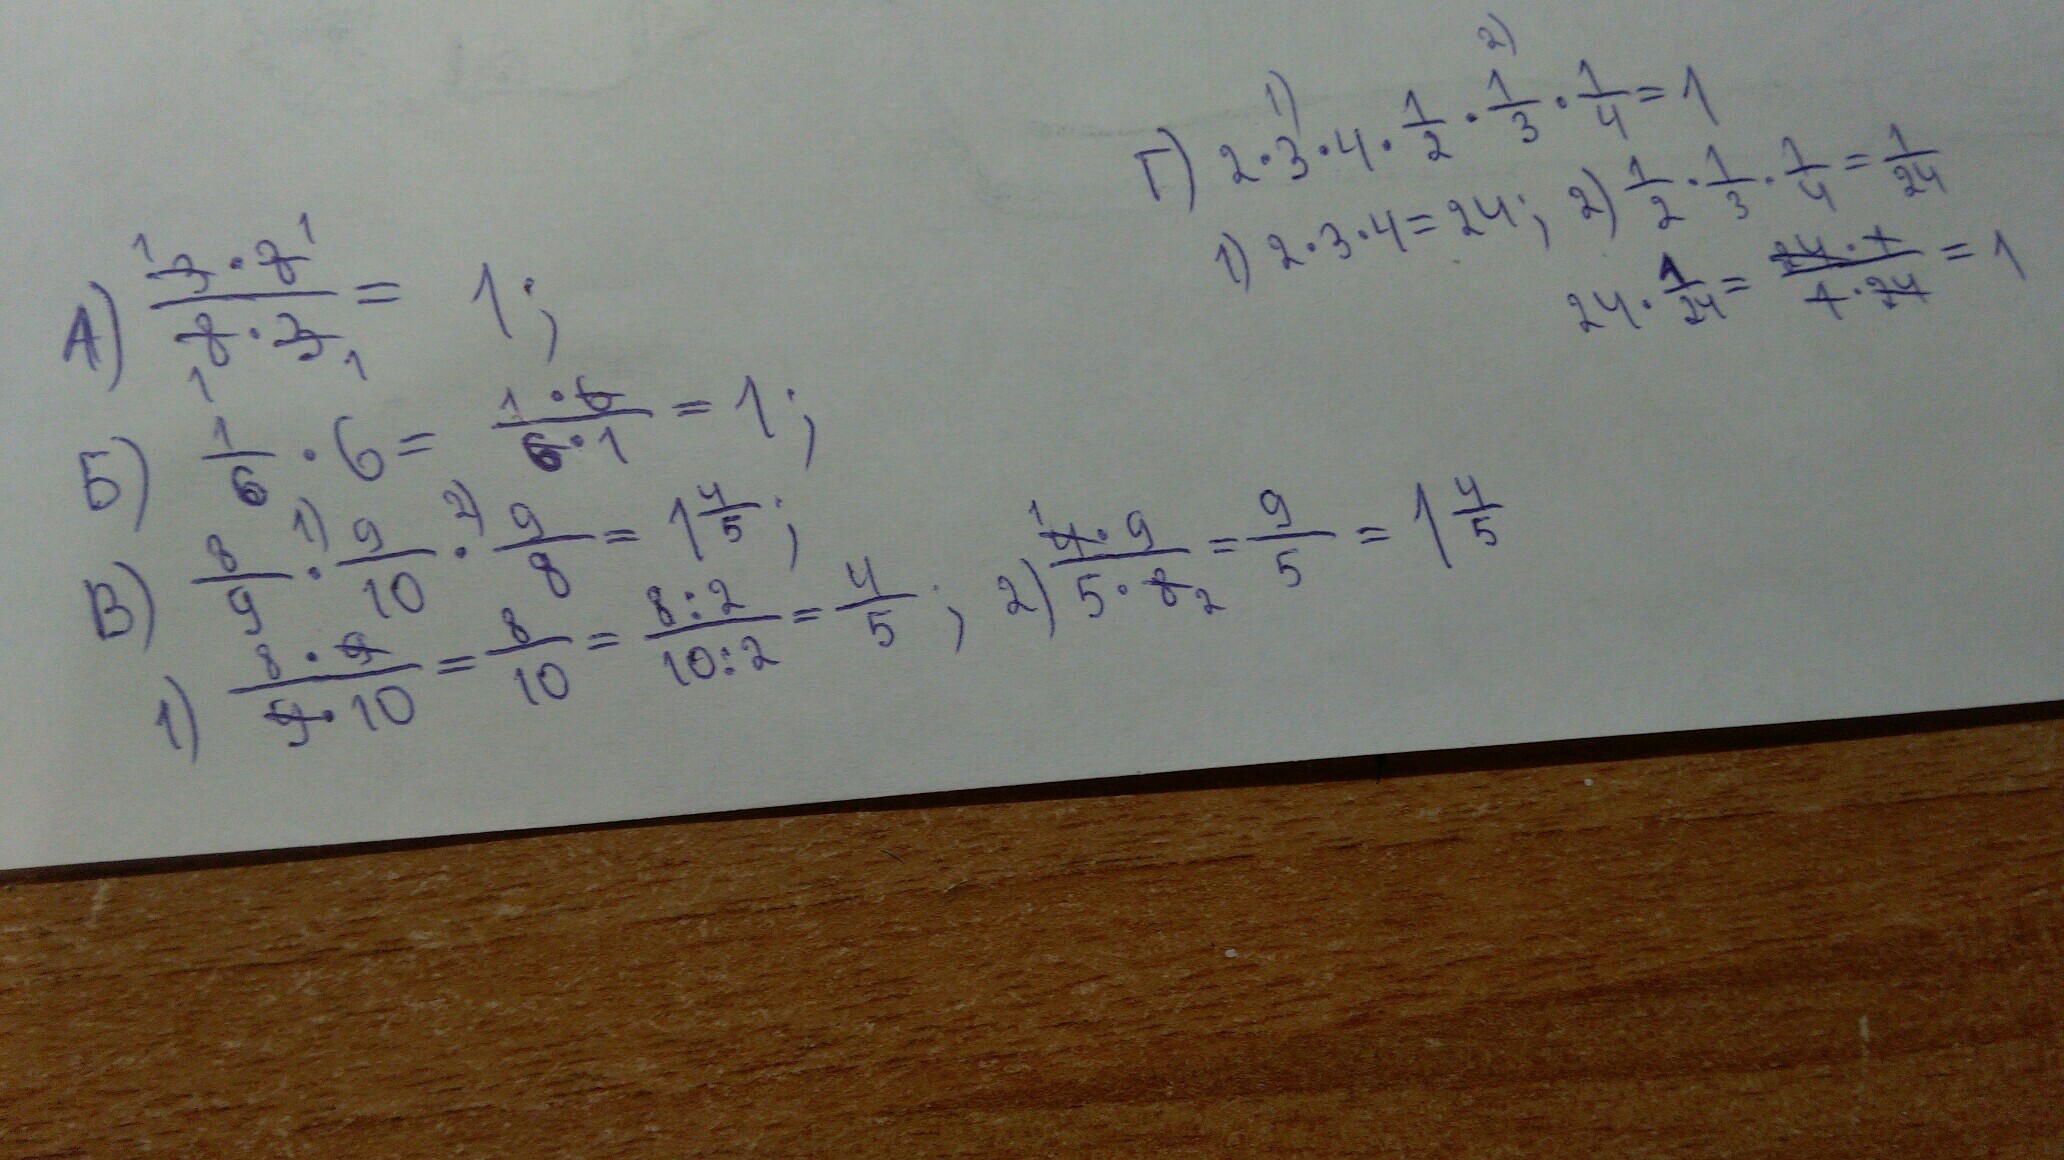 А) (3·8)/(8·3) = 1;
Б) 1/6 · 6 = (1·6)/(6·1) = 1;
В) 8/9 · 9/10 · 9/8 = 1 4/5;
1) (8·9)/(9·10) = 8/10 = (8:2)/(10:2) = 4/5; 2) (4·9)/(5·8) = 9/5 = 1 4/5
Г) 2·3·4·1/2·1/3·1/4 = 1
1) 2·3·4 = 24; 2) 1/2·1/3·1/4 = 1/24
24·1/24 = (24·1)/(1·24) = 1